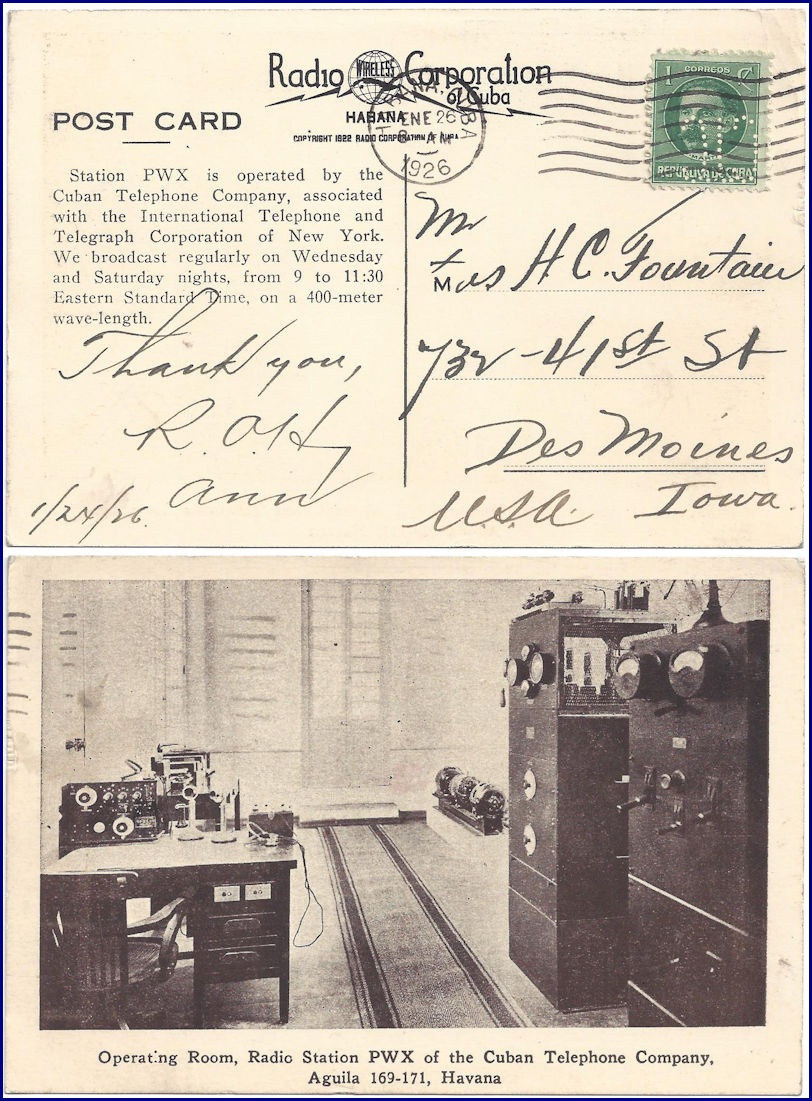 Radio WIRELESS Corporation
of Cuba
HABANA
COPYRIGHT 1922 RADIO CORPORATION OF CUBA
POST CARD
HABANA, CUBA
ENE 26
AM
1926
1 CORREOS C
REPUBLICA DE CUBA
Station PWX is operated by the
Cuban Telephone Company, associated
with the International Telephone and
Telegraph Corporation of New York.
We broadcast regularly on Wednesday
and Saturday nights, from 9 to 11:30
Eastern Standard Time, on a 400-meter
wave-length.
Thank you,
R. O. 
Ann
1/24/26.
Mr
+
Mrs H. C. Fountain
732 - 41st St
Des Moines
Iowa.
U.S.A.
Operating Room, Radio Station PWX of the Cuban Telephone Company,
Aguila 169-171, Havana